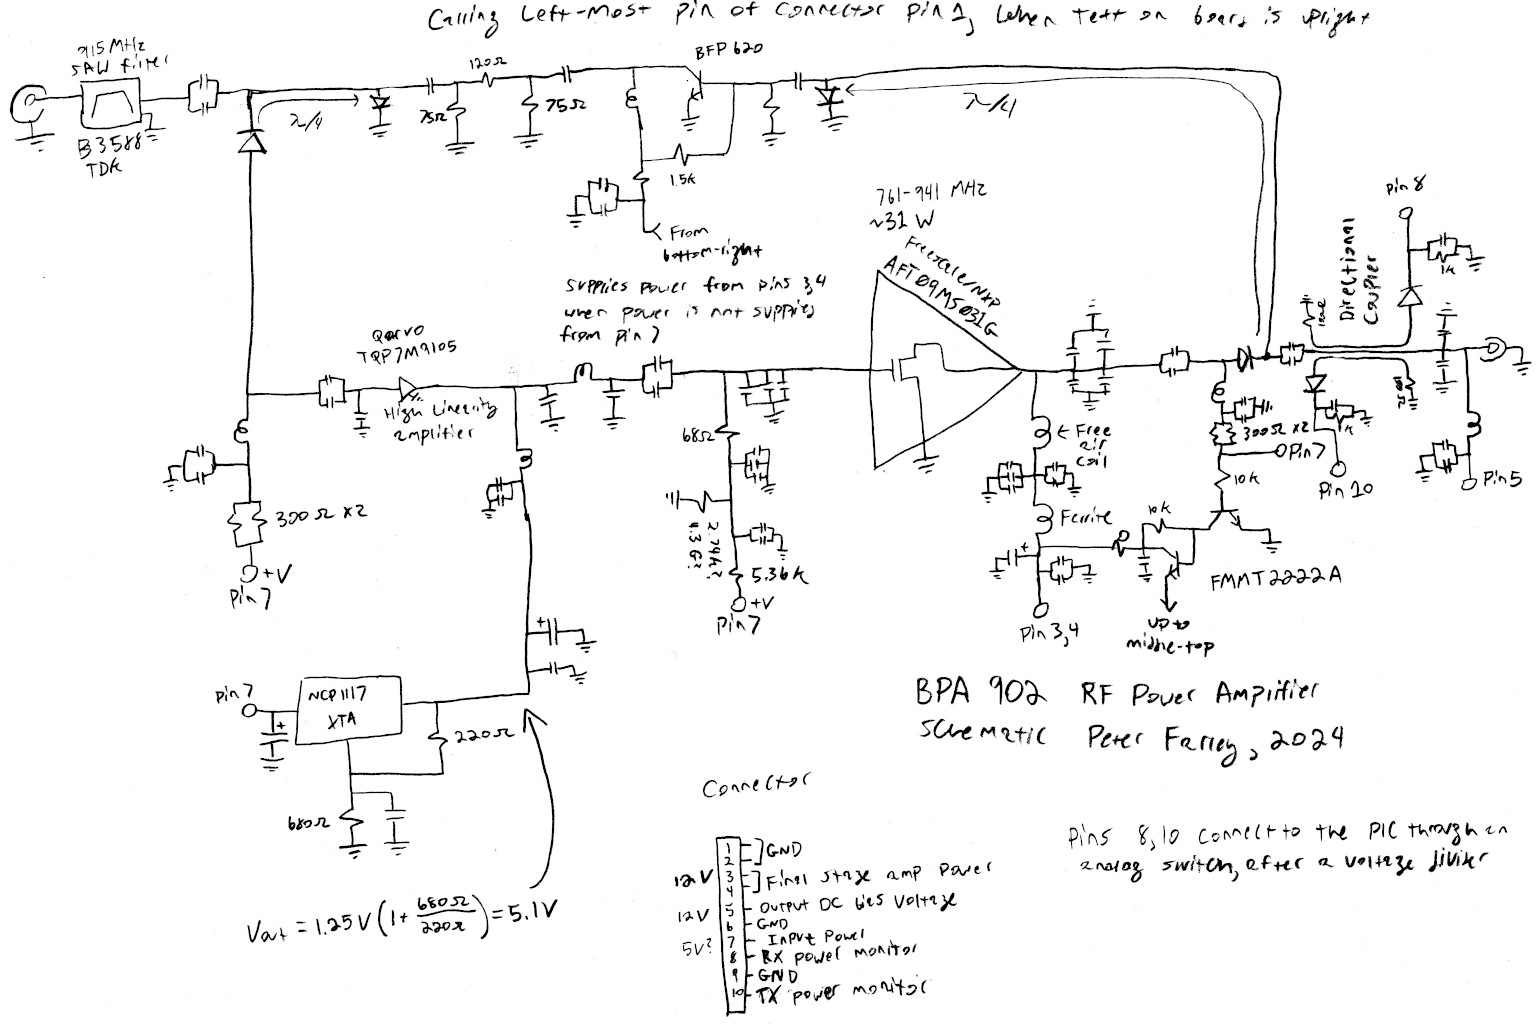 Calling Left-most pin of connector pin 1, when text on board is upright
915 MHz
SAW filter
B3588
TDK
λ/4
120Ω
75Ω
75Ω
BFP 620
1.5k
From
bottom-right
λ/4
761-941 MHz
~31 W
Freescale/NXP
AFT09MS031G
Supplies power from pins 3,4
when power is not supplied
from pin 7
Qorvo
TQP7M9105
High Linearity
amplifier
300Ω x2
+V
Pin 7
68Ω
2.74k?
4.3 G?
5.36k
+V
Pin 7
Free
air
coil
Ferrite
Pin 3,4
10k
up to
middle-top
FMMT2222A
10k
300Ω x2
Pin 7
Directional
Coupler
Pin 8
1k
1k
Pin 10
Pin 5
Pin 7
NCP1117
XTA
220Ω
680Ω
Vout = 1.25V (1 + 680Ω/220Ω) = 5.1V
BPA 902 RF Power Amplifier
Schematic Peter Farley, 2024
Connector
1
2
GND
12V
3
4
Final stage amp power
12V
5
Output DC bias voltage
6
GND
5V?
7
Input Power
8
RX power monitor
9
GND
10
TX power monitor
Pins 8,10 connect to the PIC through an
analog switch, after a voltage divider